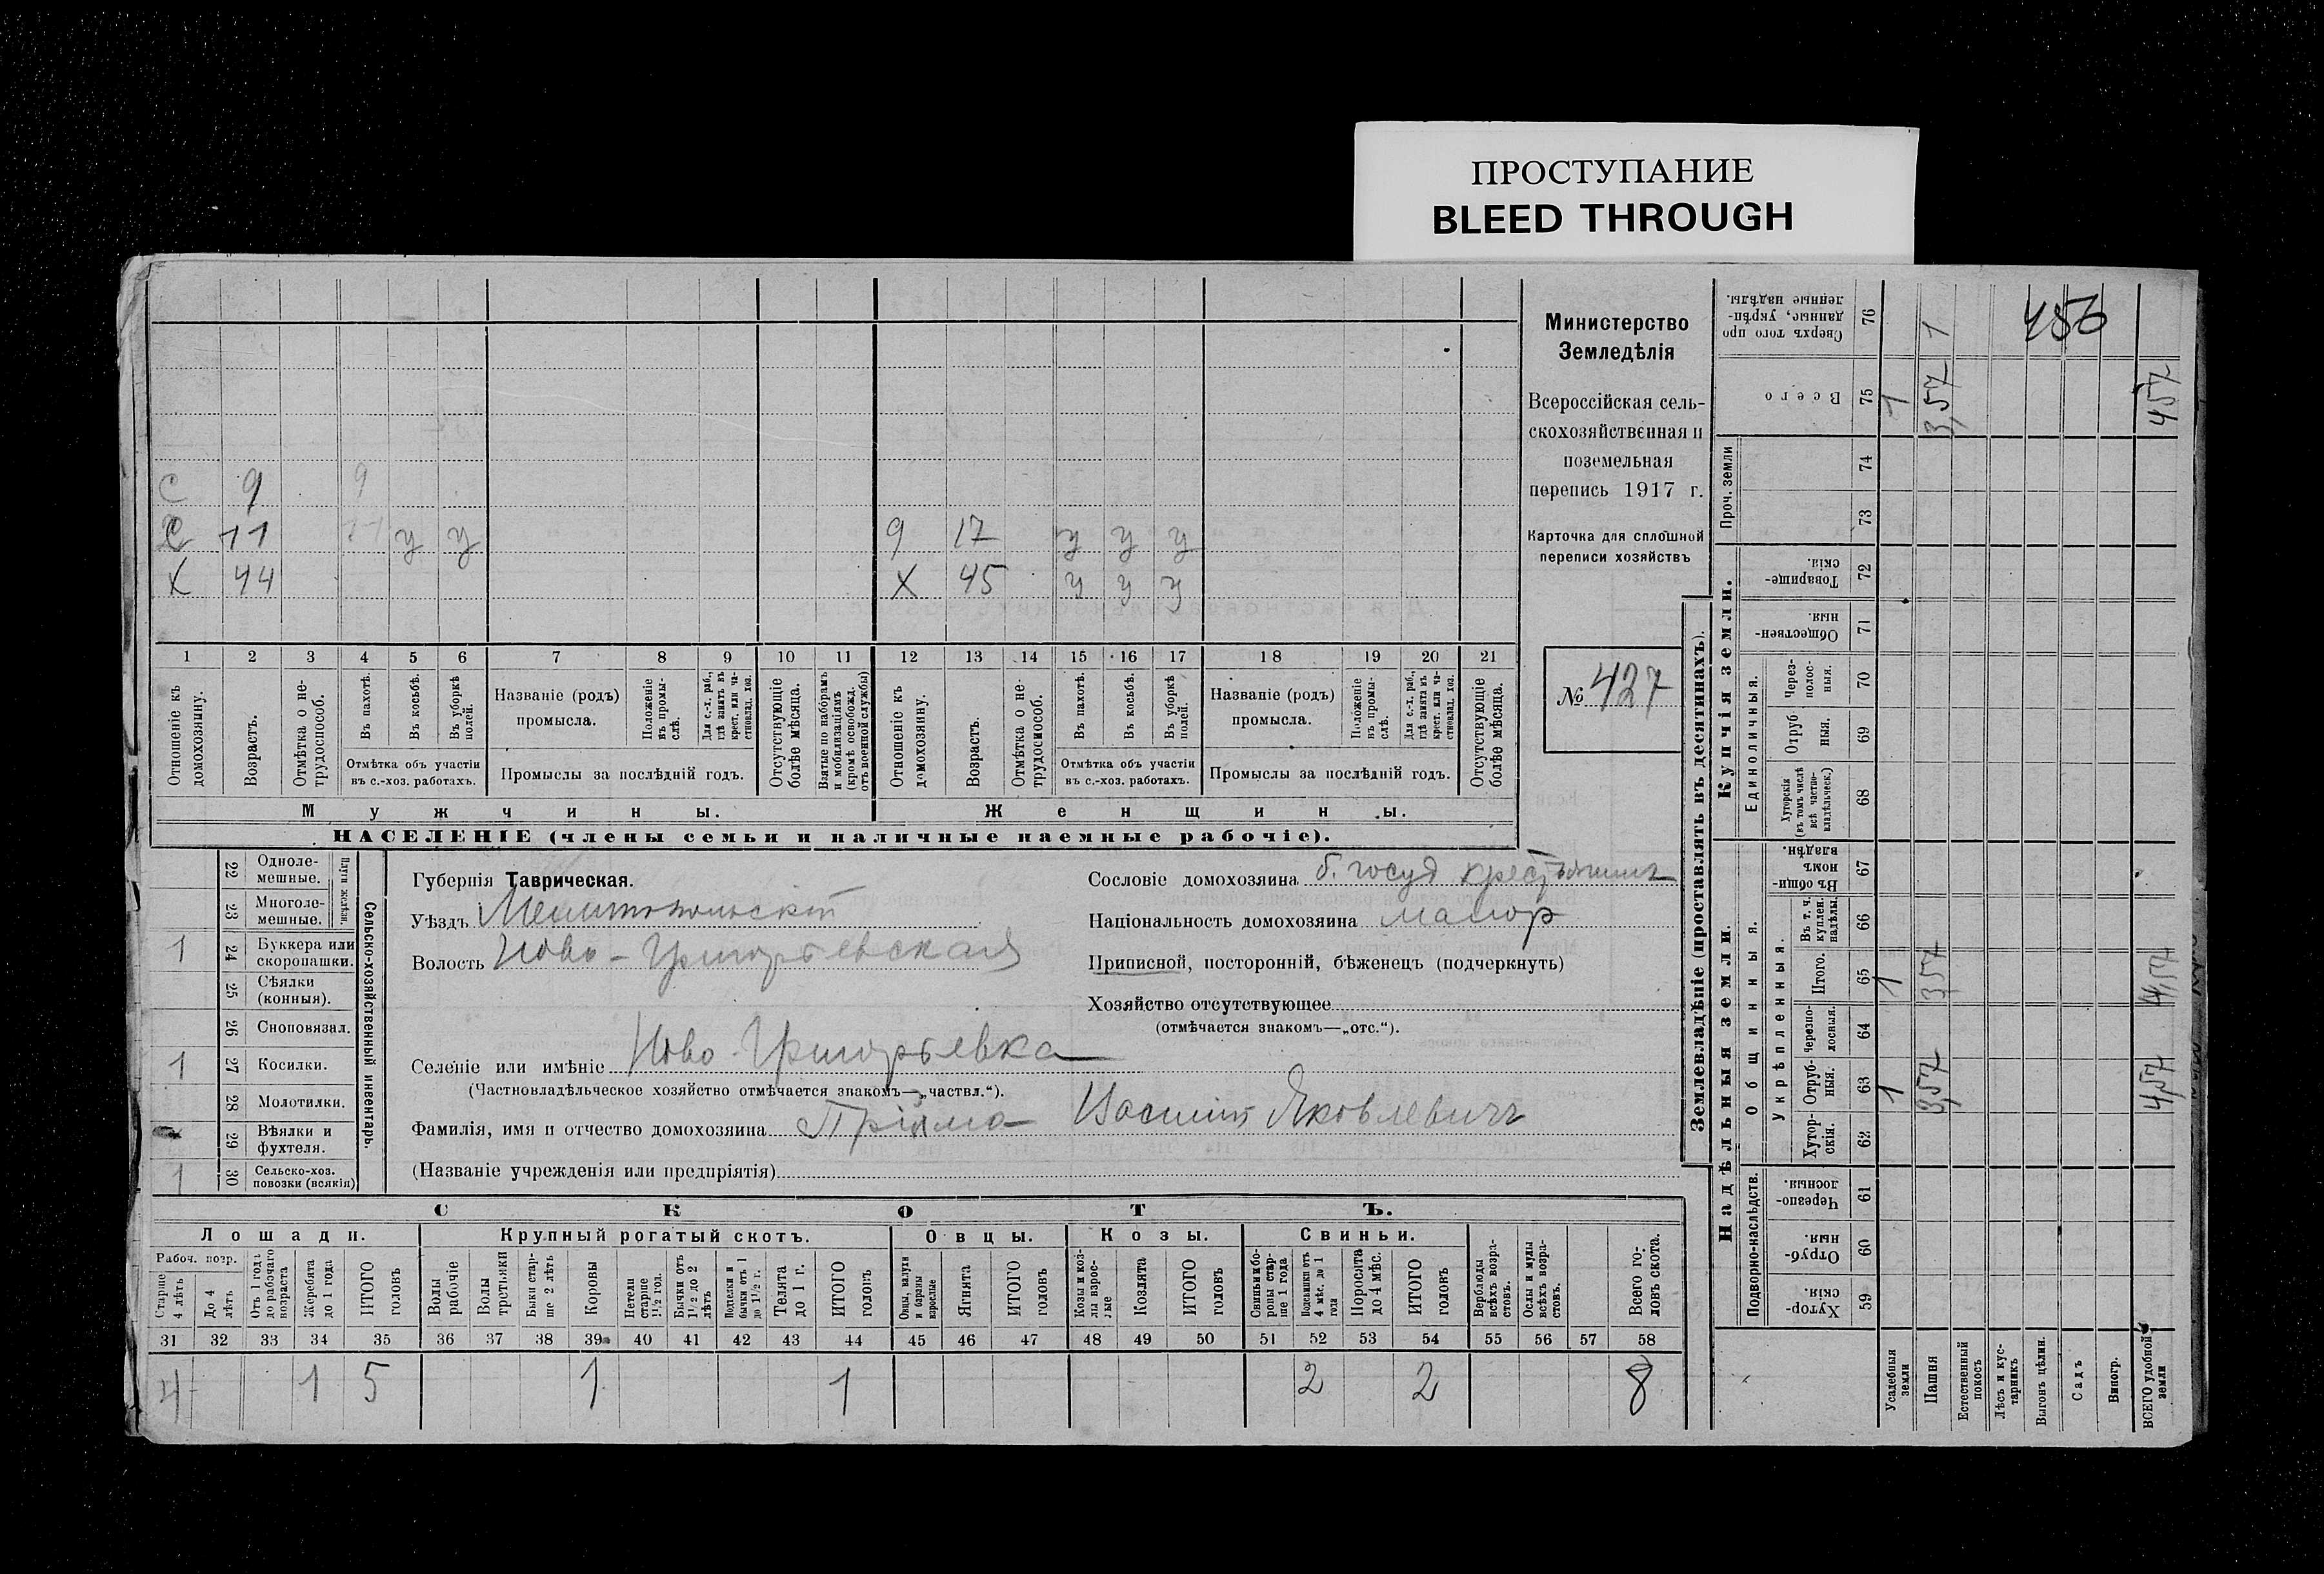 ПРОСТУПАНИЕ
BLEED THROUGH
С 9 9
С 11 11 у у
Х 44
9 17 у у у
Х 45 у у у
1 2 3 4 5 6 7 8 9 10 11 12 13 14 15 16 17 18 19 20 21
Отношеніе къ домохозяину.
Возрастъ.
Отмѣтка о нетрудоспособ.
Въ пахотѣ.
Въ косьбѣ.
Въ уборкѣ полей.
Отмѣтка объ участіи
въ с.-хоз. работахъ.
Названіе (родъ)
промысла.
Положеніе въ промыслѣ.
Для с.-х. раб., гдѣ занятъ въ крест. или частновлад. хоз.
Промыслы за послѣдній годъ.
Отсутствующіе болѣе мѣсяца.
Взятые по наборамъ и мобилизаціямъ (кромѣ освобожд. отъ военной службы)
Отношеніе къ домохозяину.
Возрастъ.
Отмѣтка о нетрудоспособ.
Въ пахотѣ.
Въ косьбѣ.
Въ уборкѣ полей.
Отмѣтка объ участіи
въ с.-хоз. работахъ.
Названіе (родъ)
промысла.
Положеніе въ промыслѣ.
Для с.-х. раб., гдѣ занятъ въ крест. или частновлад. хоз.
Промыслы за послѣдній годъ.
Отсутствующіе болѣе мѣсяца.
Мужчины.
Женщины.
НАСЕЛЕНІЕ (члены семьи и наличные наемные рабочіе).
Министерство
Земледѣлія
Всероссійская сель-
скохозяйственная и
поземельная
перепись 1917 г.
Карточка для сплошной
переписи хозяйствъ
№ 427
Сельско-хозяйственный инвентарь.
Плуги желѣзн.
22 Одноле-
мешные.
23 Многоле-
мешные.
1 24 Буккера или
скоропашки.
25 Сѣялки
(конныя).
26 Сноповязал.
1 27 Косилки.
28 Молотилки.
29 Вѣялки и
фухтеля.
1 30 Сельско-хоз.
повозки (всякія)
Губернія Таврическая.
Уѣздъ Мелитопольскій
Волость Ново-Григорьевская
Селеніе или имѣніе Ново-Григорьевка
(Частновладѣльческое хозяйство отмѣчается знакомъ—„частвл.“).
Фамилія, имя и отчество домохозяина Прійма Василій Яковлевичъ
(Названіе учрежденія или предпріятія)
Сословіе домохозяина б. госуд крестьянинъ
Національность домохозяина малор
Приписной, посторонній, бѣженецъ (подчеркнуть)
Хозяйство отсутствующее
(отмѣчается знакомъ—„отс.“).
СКОТЪ.
Лошади.
Крупный рогатый скотъ.
Овцы.
Козы.
Свиньи.
Рабоч. возр.
Старше 4 лѣтъ
До 4 лѣтъ
Отъ 1 года до рабочаго возраста
Жеребята до 1 года
ИТОГО головъ
Волы рабочіе
Волы третьяки
Быки старше 2 лѣтъ
Коровы
Нетели старше 1½ год.
Бычки отъ 1½ до 2 лѣтъ
Подтелки и бычки отъ 1 до 1½ г.
Телята до 1 г.
ИТОГО головъ
Овцы, валухи и бараны взрослые
Ягнята
ИТОГО головъ
Козы и козлы взрослые
Козлята
ИТОГО головъ
Свиньи и боровы старше 1 года
Подсвинки отъ 4 мѣс. до 1 года
Поросята до 4 мѣс.
ИТОГО головъ
Верблюды всѣхъ возрастовъ.
Ослы и мулы всѣхъ возрастовъ.
Всего головъ скота.
31 32 33 34 35 36 37 38 39 40 41 42 43 44 45 46 47 48 49 50 51 52 53 54 55 56 57 58
4 1 5 1 1 2 2 8
Землевладѣніе (проставлять въ десятинахъ).
Надѣльныя земли.
Купчія земли.
Проч. земли
Подворно-наслѣдств.
Общинныя.
Укрѣпленныя.
Единоличныя.
Хутор-
скія.
59
Отруб-
ныя.
60
Черезпо-
лосныя.
61
Хутор-
скія.
62
Отруб-
ныя.
63
Черезпо-
лосныя.
64
Итого.
65
Въ т. ч.
куплен.
надѣлы.
66
Въ общи-
номъ
владѣн.
67
Хуторскія
(въ томъ числѣ
всѣ частно-
владѣльческ.)
68
Отруб
ныя.
69
Через-
полос-
ныя.
70
Обществен-
ныя.
71
Товарище-
скія.
72
73
74
Всего
75
Сверхъ того про
данные, укрѣп-
ленные надѣлы.
76
Усадебныя
земли
1 1 1
Пашня
3,57 3,57 3,57 1
Естественный
покосъ
Лѣсъ и кус-
тарникъ
Выгонъ цѣлин.
456
Садъ
Виногр.
ВСЕГО удобной
земли
4,57 4,57 4,57